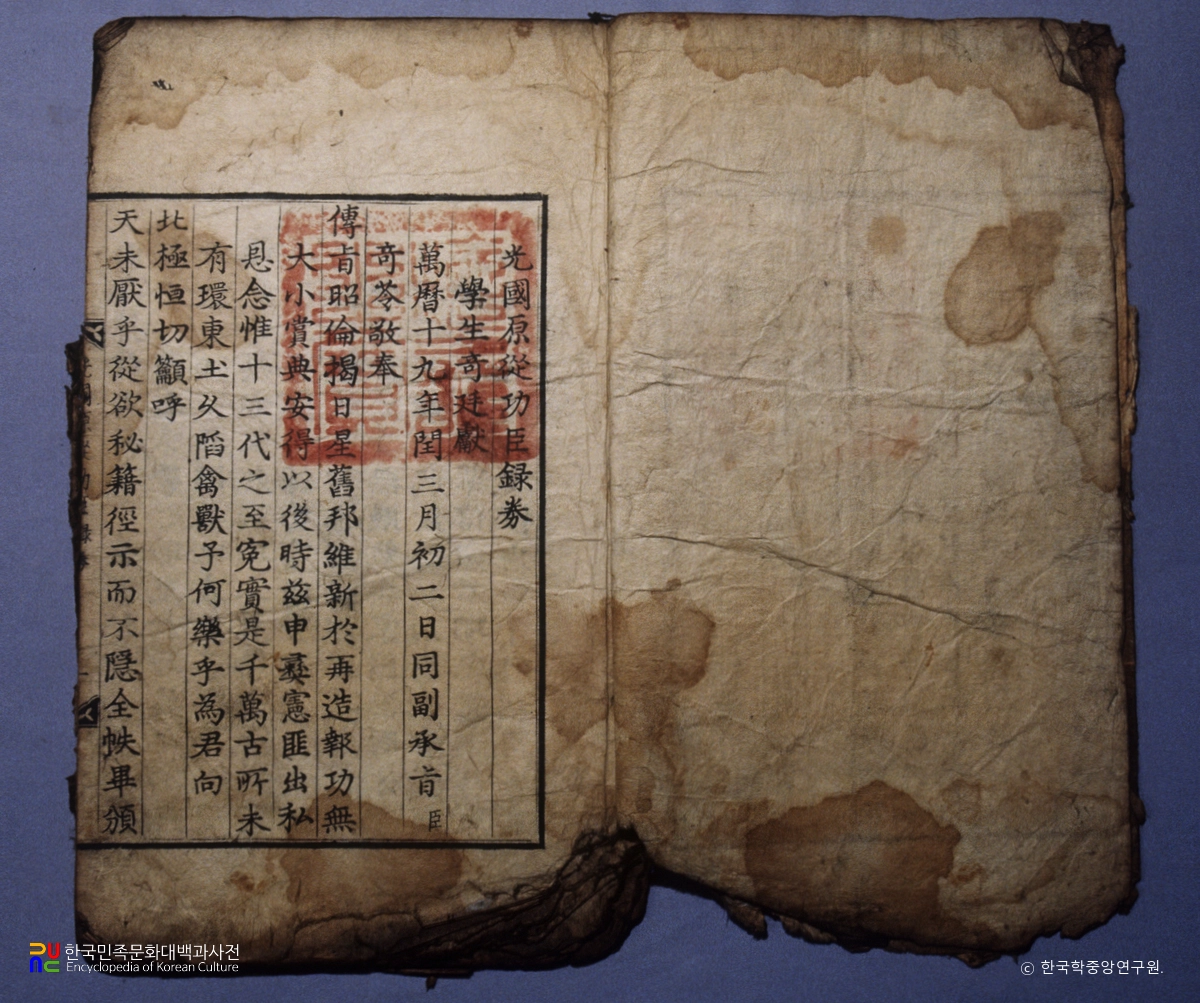 光國原從功臣錄券
學生奇廷獻
萬曆十九年閏三月初二日同副承旨臣
奇苓敬奉
傳旨昭倫揭日星舊邦維新於再造報功無
大小賞典安得以後時玆申彝憲匪出私
恩念惟十三代之至寃實是千萬古所未
有環東土久陷禽獸予何樂乎為君向
北極恒切籲呼
天未厭乎從欲秘籍徑示而不隱全帙畢頒
한국민족문화대백과사전
Encyclopedia of Korean Culture
ⓒ 한국학중앙연구원.